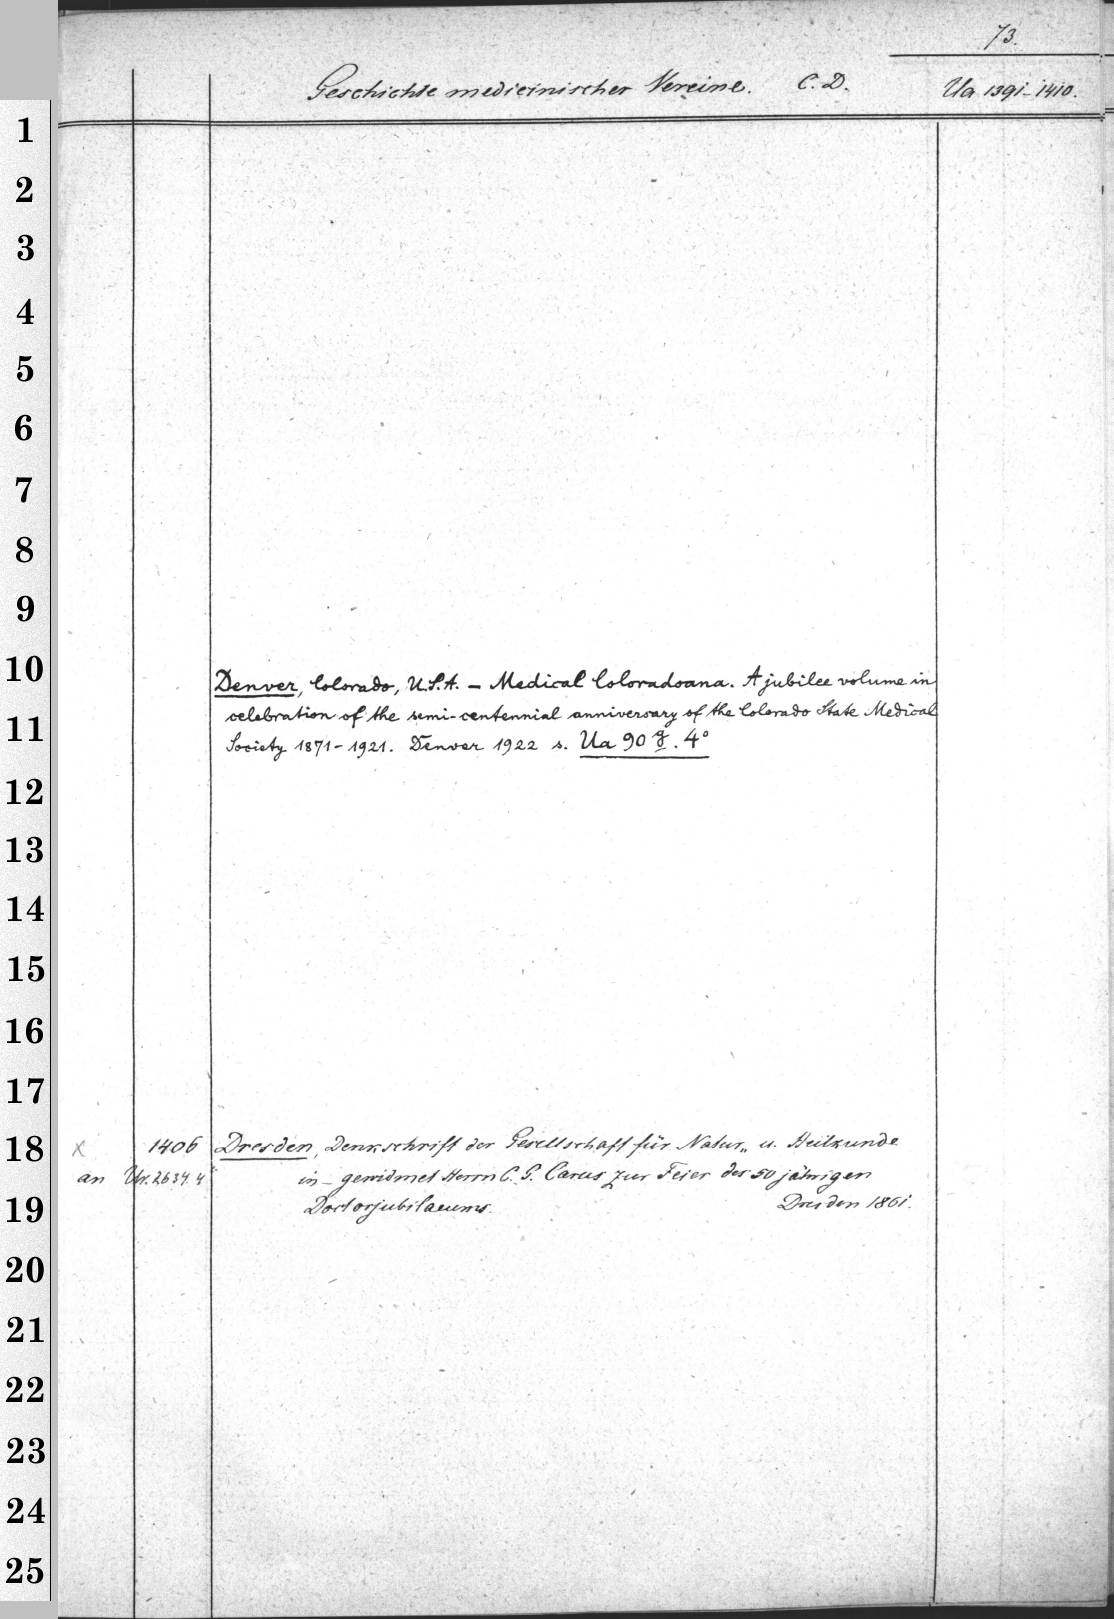 73.
Geschichte medicinischer Vereine. C. D. Ua 1391-1410.
1
2
3
4
5
6
7
8
9
10
Denver, Colorado, U.S.A. – Medical Coloradoana. A jubilee volume in
celebration of the semi-centennial anniversary of the Colorado State Medical
11
Society 1871-1921. Denver 1922 s. Ua 90 g. 4°
12
13
14
15
16
17
18 x 1406 Dresden, Denkschrift der Gesellschaft für Natur- u. Heilkunde
an in – gewidmet Herrn C. G. Carus zur Feier des 50 jährigen
19 Doctorjubilaeums. Dresden 1861.
20
21
22
23
24
25